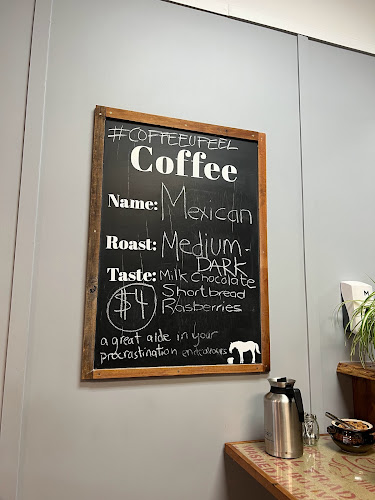 #COFFEEUFEEL
Coffee
Name: Mexican
Roast: Medium-
DARK
Taste: Milk Chocolate
Shortbread
Rasberries
$4
a great aide in your
procrastination endeavours